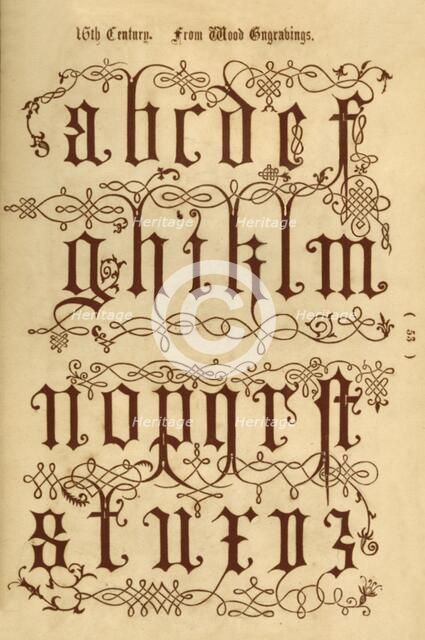 16th Century. From Wood Engravings.
abcdef
ghiklm
( 53 )
nopqrſt
stuxvz
Heritage Heritage
Heritage Heritage
Heritage Heritage
Heritage Heritage
©